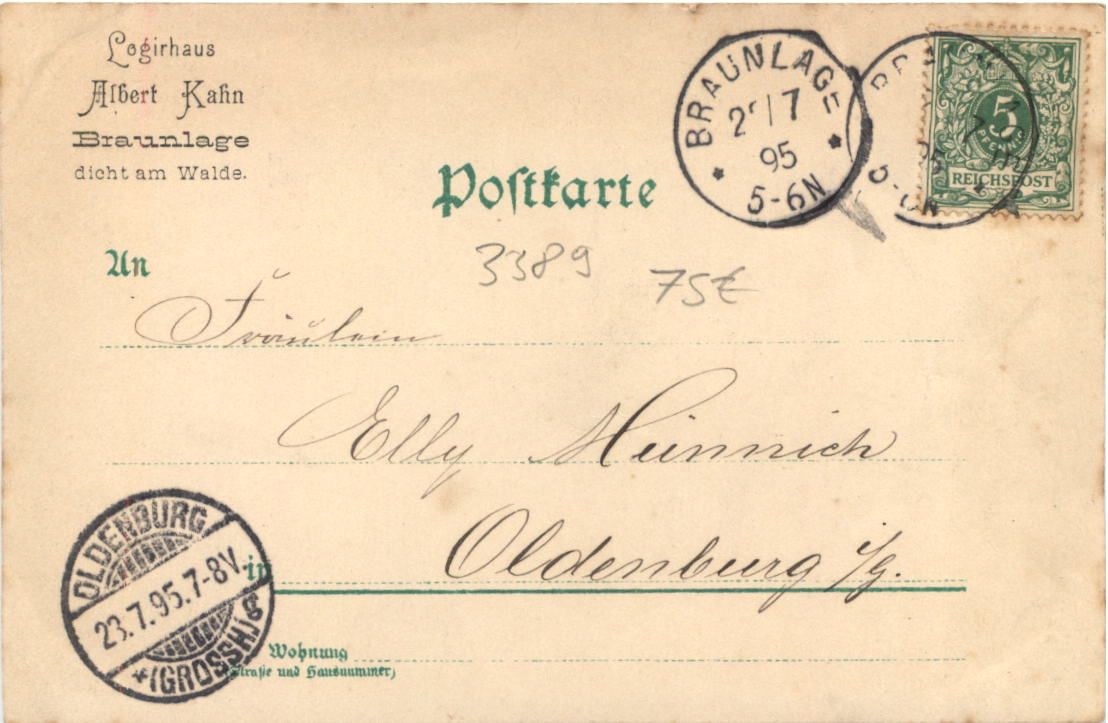 Logirhaus
Albert Kahn
Braunlage
dicht am Walde.
BRAUNLAGE
7
95
5-6N
5
REICHSPOST
Poſtkarte
3389
75€
An
Fräulein
Elly Heinrich
Oldenburg i/g.
in
OLDENBURG
23.7.95.7-8V.
*(GROSSH)g
Wohnung
(Straße und Hausnummer)